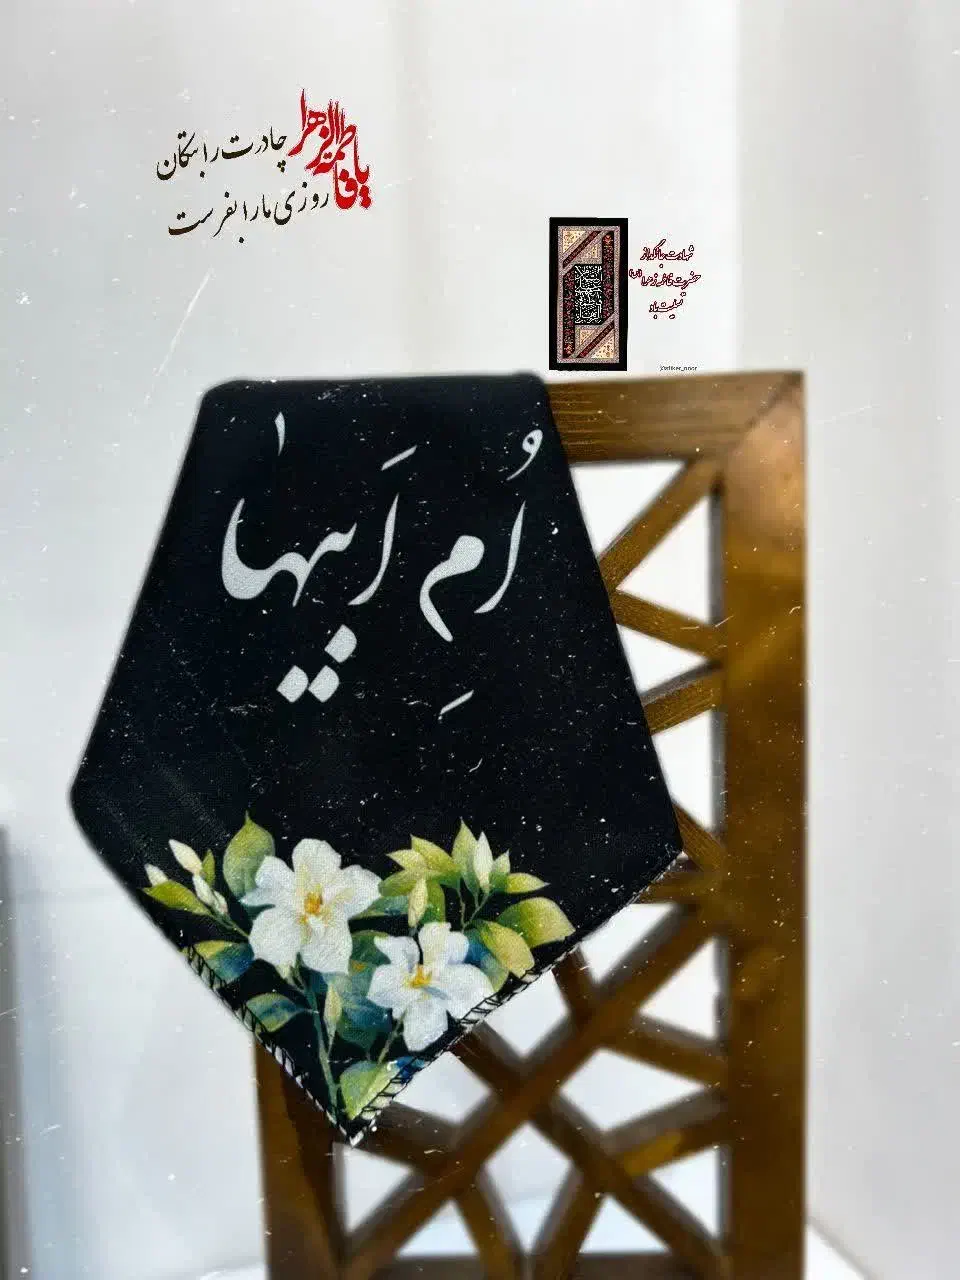 یا فاطمة الزهرا
چادرت را بتکان
روزی ما را بفرست
شهادت جانگداز
حضرت فاطمه زهرا (س)
تسلیت باد
@stiker_noor
اُمِ اَبیها